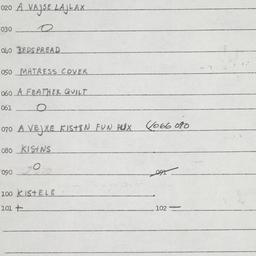 020 A VAJSE LAJLAX
030 O
040 BEDSPREAD
050 MATRESS COVER
060 A FEATHER QUILT
061 O
070 A VEJXE KISTEN FUN HUX
080 KISTNS
090 O 091
100 KISTELE
101 + 102 —